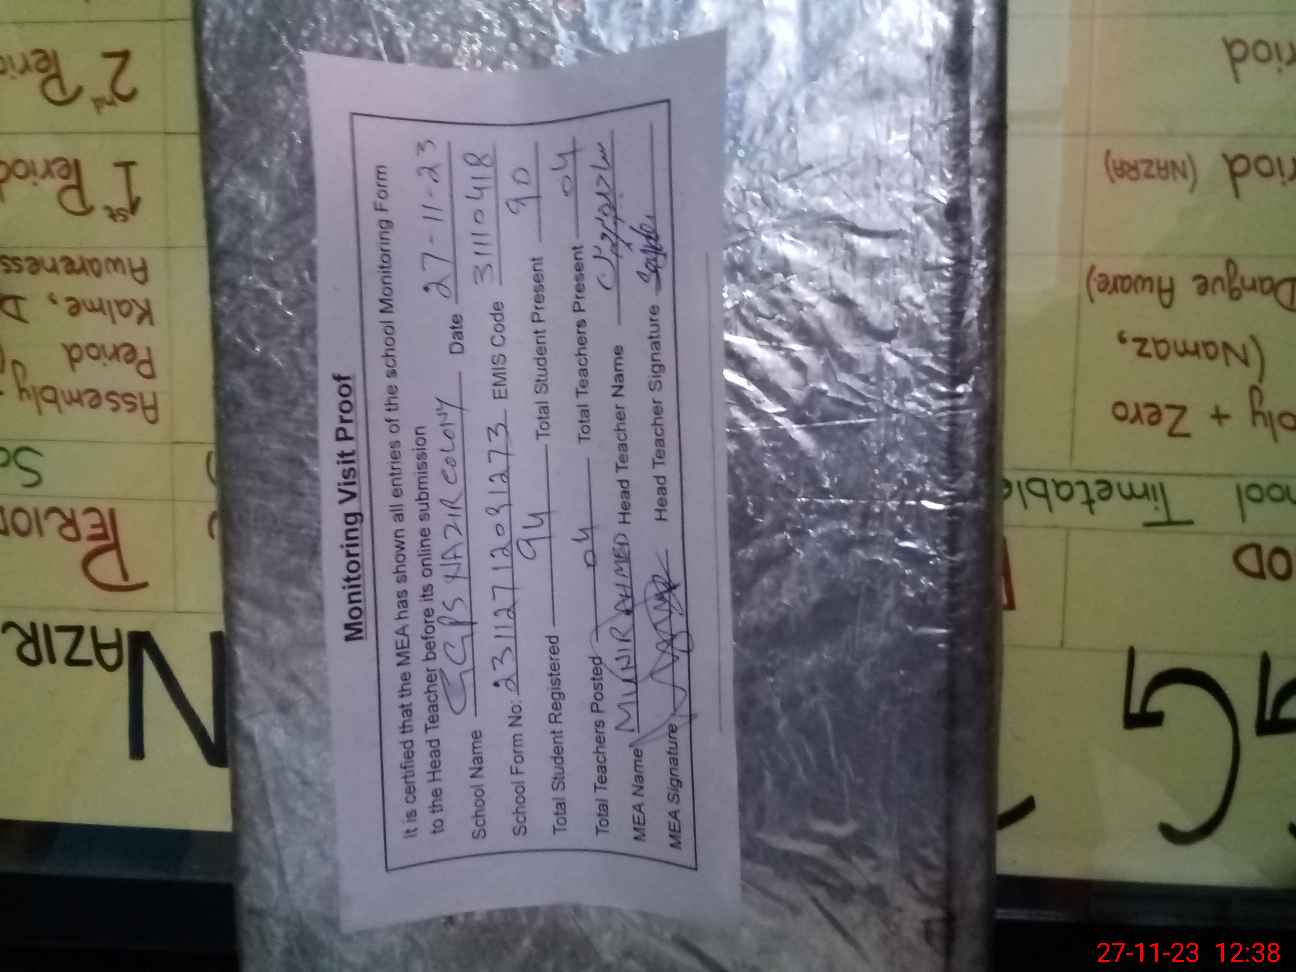 Monitoring Visit Proof
It is certified that the MEA has shown all entries of the school Monitoring Form
to the Head Teacher before its online submission
School Name GGPS NAZIR COLONY Date 27-11-23
School Form No: 2311271203 1273 EMIS Code 31110418
Total Student Registered 94 Total Student Present 90
Total Teachers Posted 04 Total Teachers Present 04
MEA Name MUNIR AHMED Head Teacher Name
MEA Signature Head Teacher Signature
NAZIR
PERIOD
Assembly
Period
Kalme, D
Awareness
1st Period
2nd Perio
G
OD
ool Timetable
bly + Zero
(Namaz,
Dangue Aware)
riod (NAZRA)
riod
27-11-23 12:38